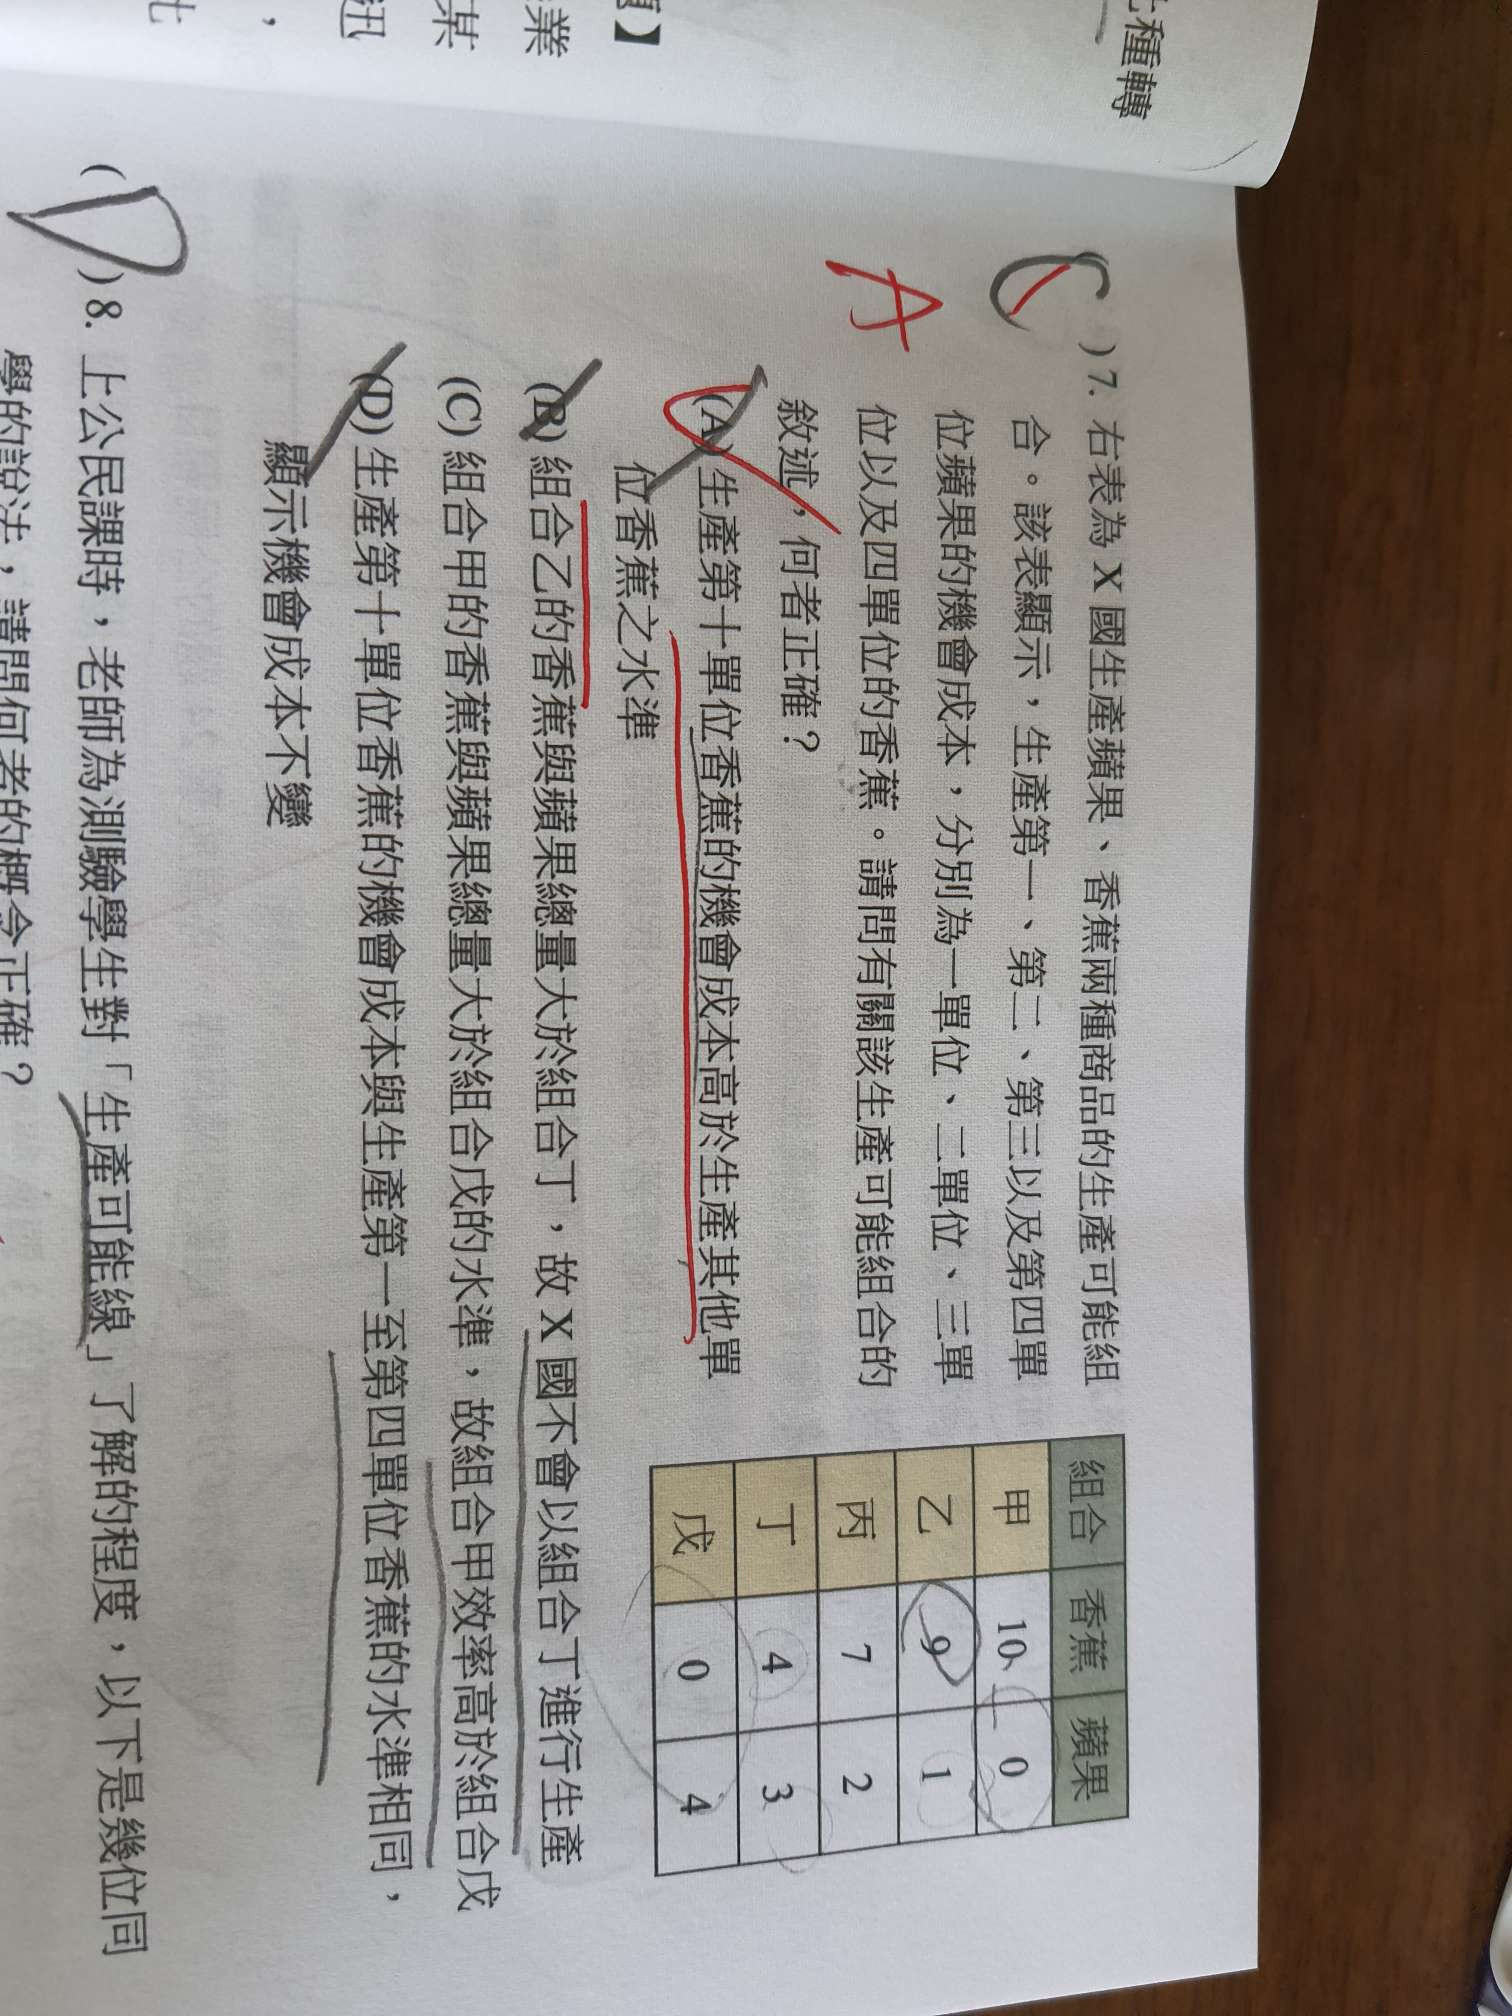 此種轉
題】
業
某
迅
，
比
( C ) 7. 右表為 X 國生產蘋果、香蕉兩種商品的生產可能組
合。該表顯示，生產第一、第二、第三以及第四單
位蘋果的機會成本，分別為一單位、二單位、三單
位以及四單位的香蕉。請問有關該生產可能組合的
敘述，何者正確？
A
(A) 生產第十單位香蕉的機會成本高於生產其他單
位香蕉之水準
(B) 組合乙的香蕉與蘋果總量大於組合丁，故 X 國不會以組合丁進行生產
(C) 組合甲的香蕉與蘋果總量大於組合戊的水準，故組合甲效率高於組合戊
(D) 生產第十單位香蕉的機會成本與生產第一至第四單位香蕉的水準相同，
顯示機會成本不變
組合 香蕉 蘋果
甲 10 0
乙 9 1
丙 7 2
丁 4 3
戊 0 4
( D ) 8. 上公民課時，老師為測驗學生對「生產可能線」了解的程度，以下是幾位同
學的說法，請問何者的概念正確？